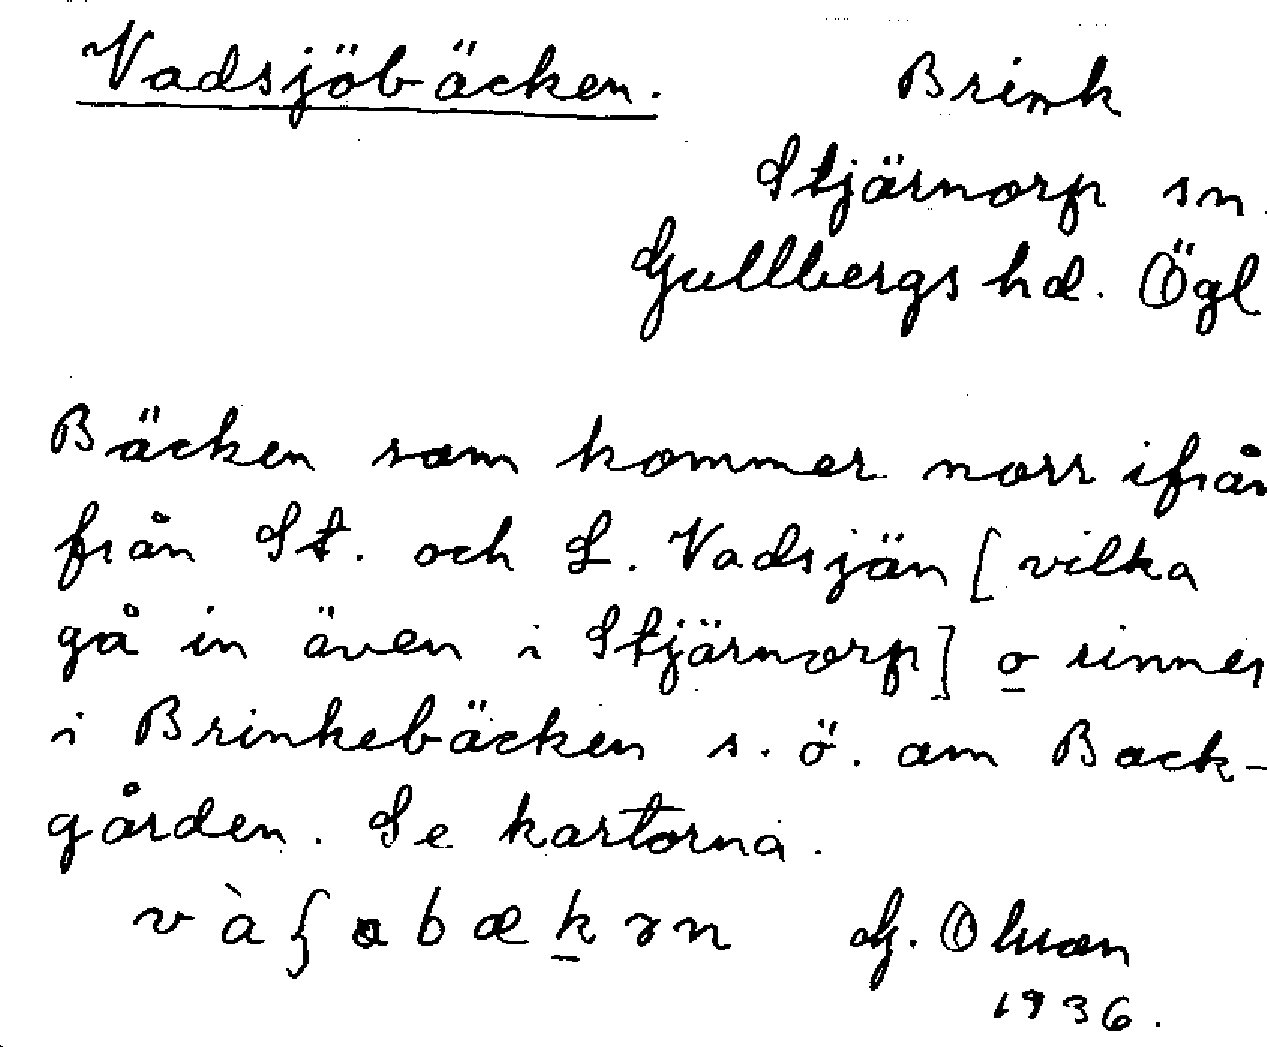 Vadsjöbäcken. Brink
Stjärnorp sn.
Gullbergs hd. Ögl
Bäcken som kommer norr ifrån
från St. och L. Vadsjön [vilka
gå in även i Stjärnorp] o rinner
i Brinkebäcken s. ö. om Back-
gården. Se kartorna.
G. Olson
1936.